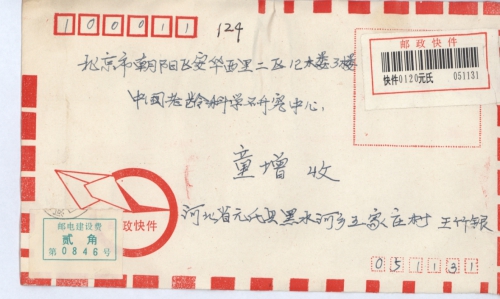 100011 124
北京市朝阳区安华西里二区12木娄3楼
中国老龄科学研究中心
童增 收
邮政快件
快件0120元氏 051131
邮政快件
邮电建设费
贰角
第0846号
河北省元氏县黑水河乡王家庄村 王竹银
051131